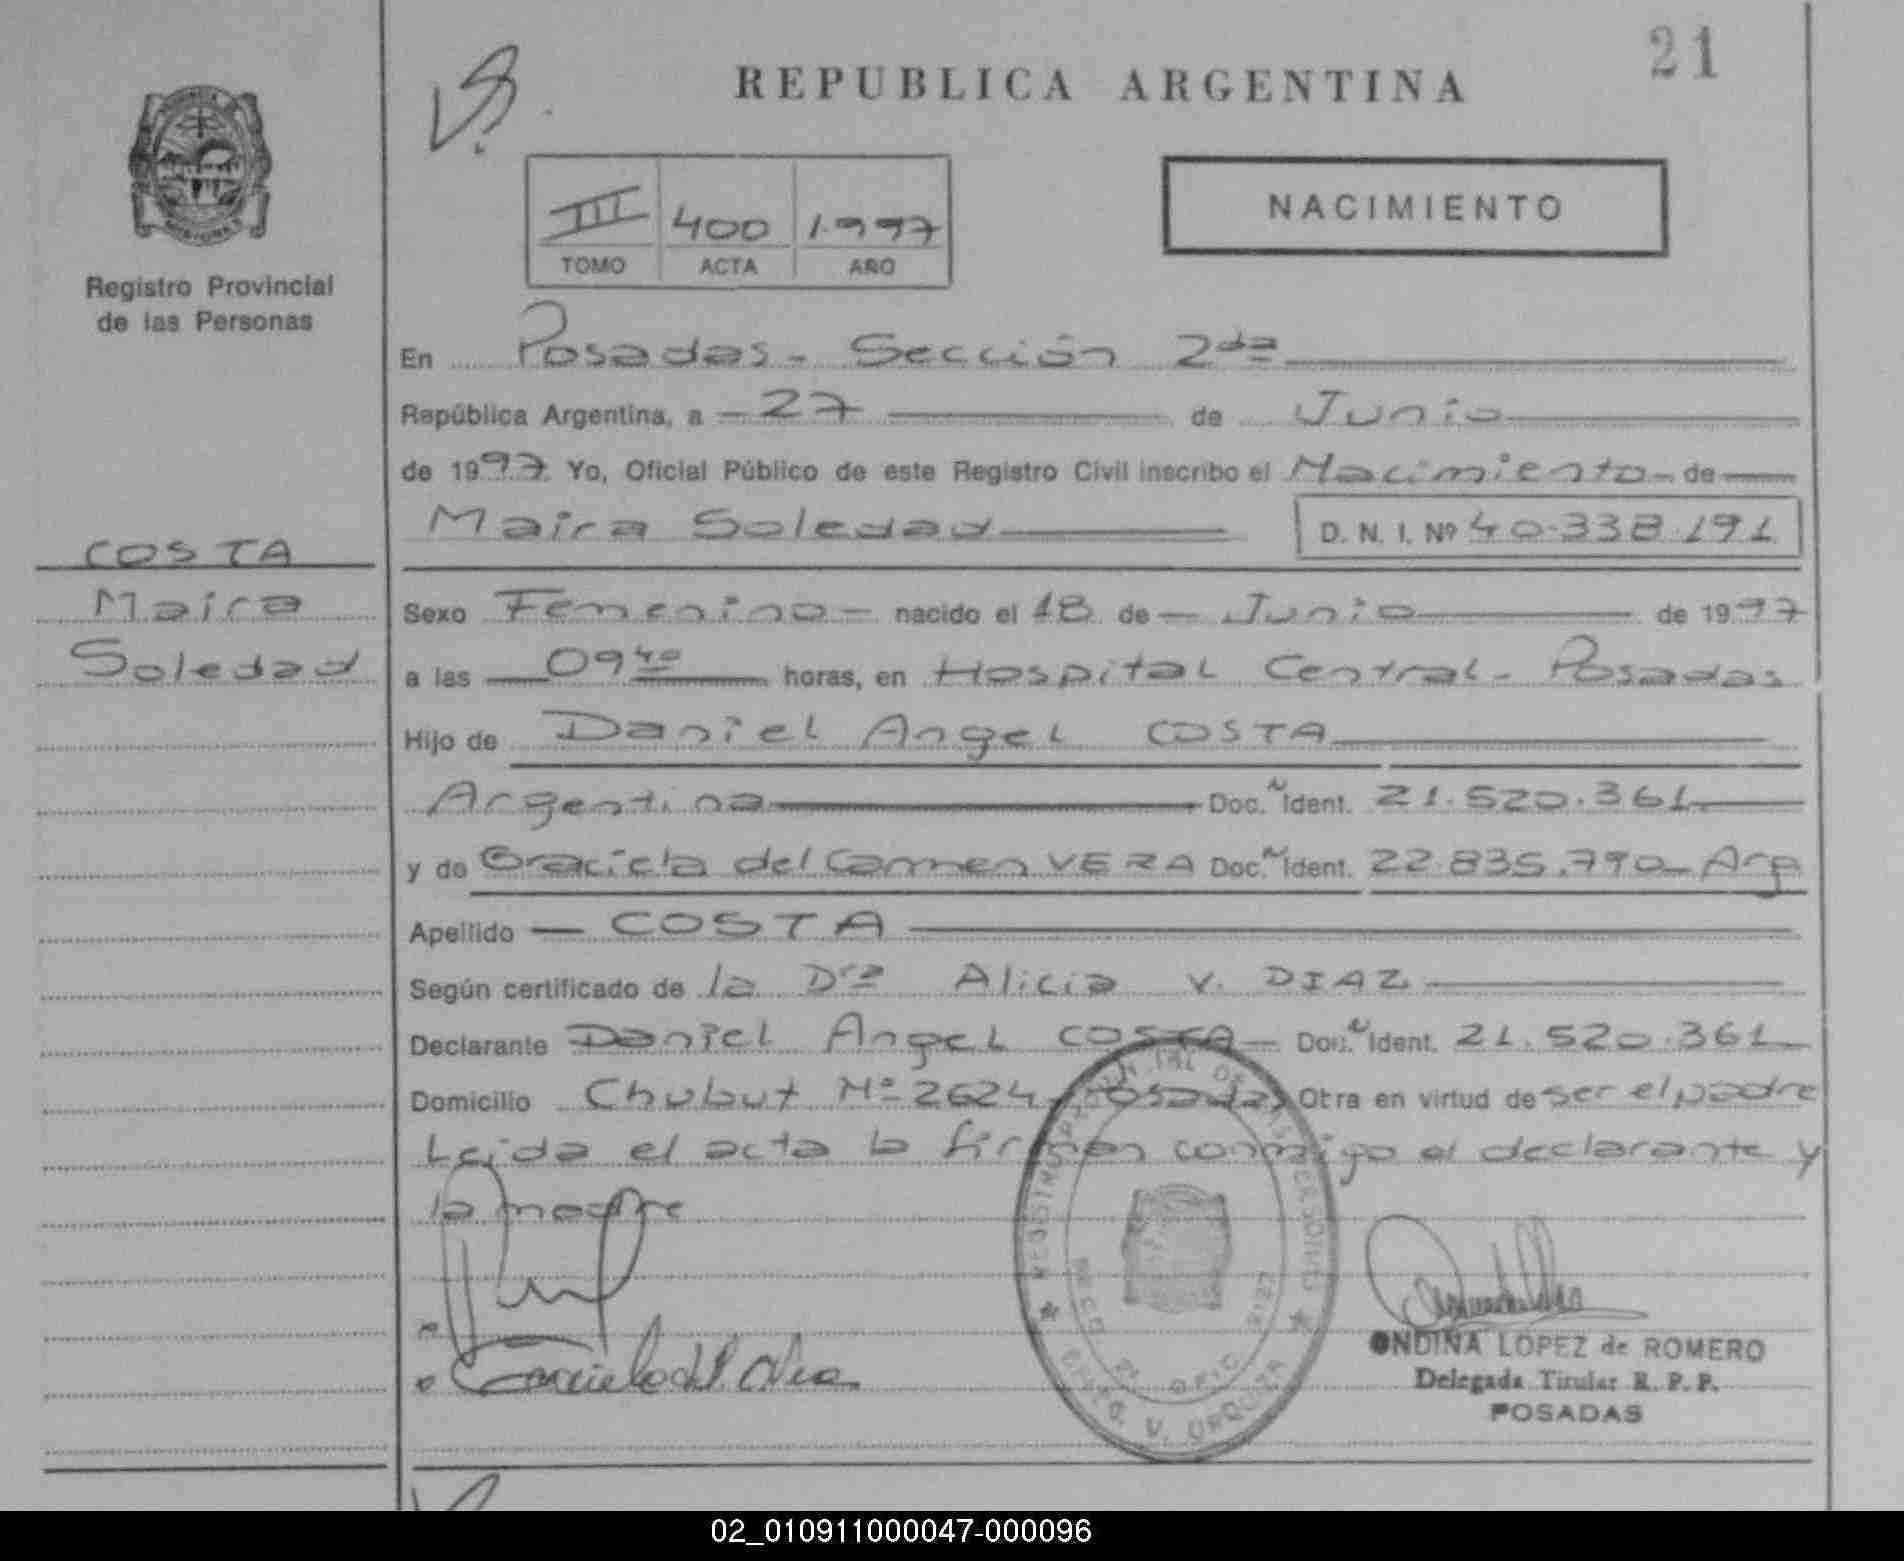 21
REPUBLICA ARGENTINA
NACIMIENTO
III 400 1.997
TOMO ACTA AÑO
Registro Provincial
de las Personas
COSTA
Maira
Soledad
En Posadas - Sección 2da
República Argentina, a 27 de Junio
de 1997 Yo, Oficial Público de este Registro Civil inscribo el Nacimiento de
Maira Soledad D. N. I. Nº 40.338.191
Sexo Femenino nacido el 18 de Junio de 1997
a las 09 40 horas, en Hospital Central - Posadas
Hijo de Daniel Angel COSTA
Argentina Doc. Ident. 21.520.361
y de Graciela del Carmen VERA Doc. Ident. 22.835.790 Arg
Apellido COSTA
Según certificado de la Dra Alicia V. DIAZ
Declarante Daniel Angel COSTA Doc. Ident. 21.520.361
Domicilio Chubut Nº 2624 Posadas Otra en virtud de ser el padre
Leida el acta la firman conmigo el declarante y
la madre
ONDINA LOPEZ de ROMERO
Delegada Titular R. P. P.
POSADAS
02_010911000047-000096